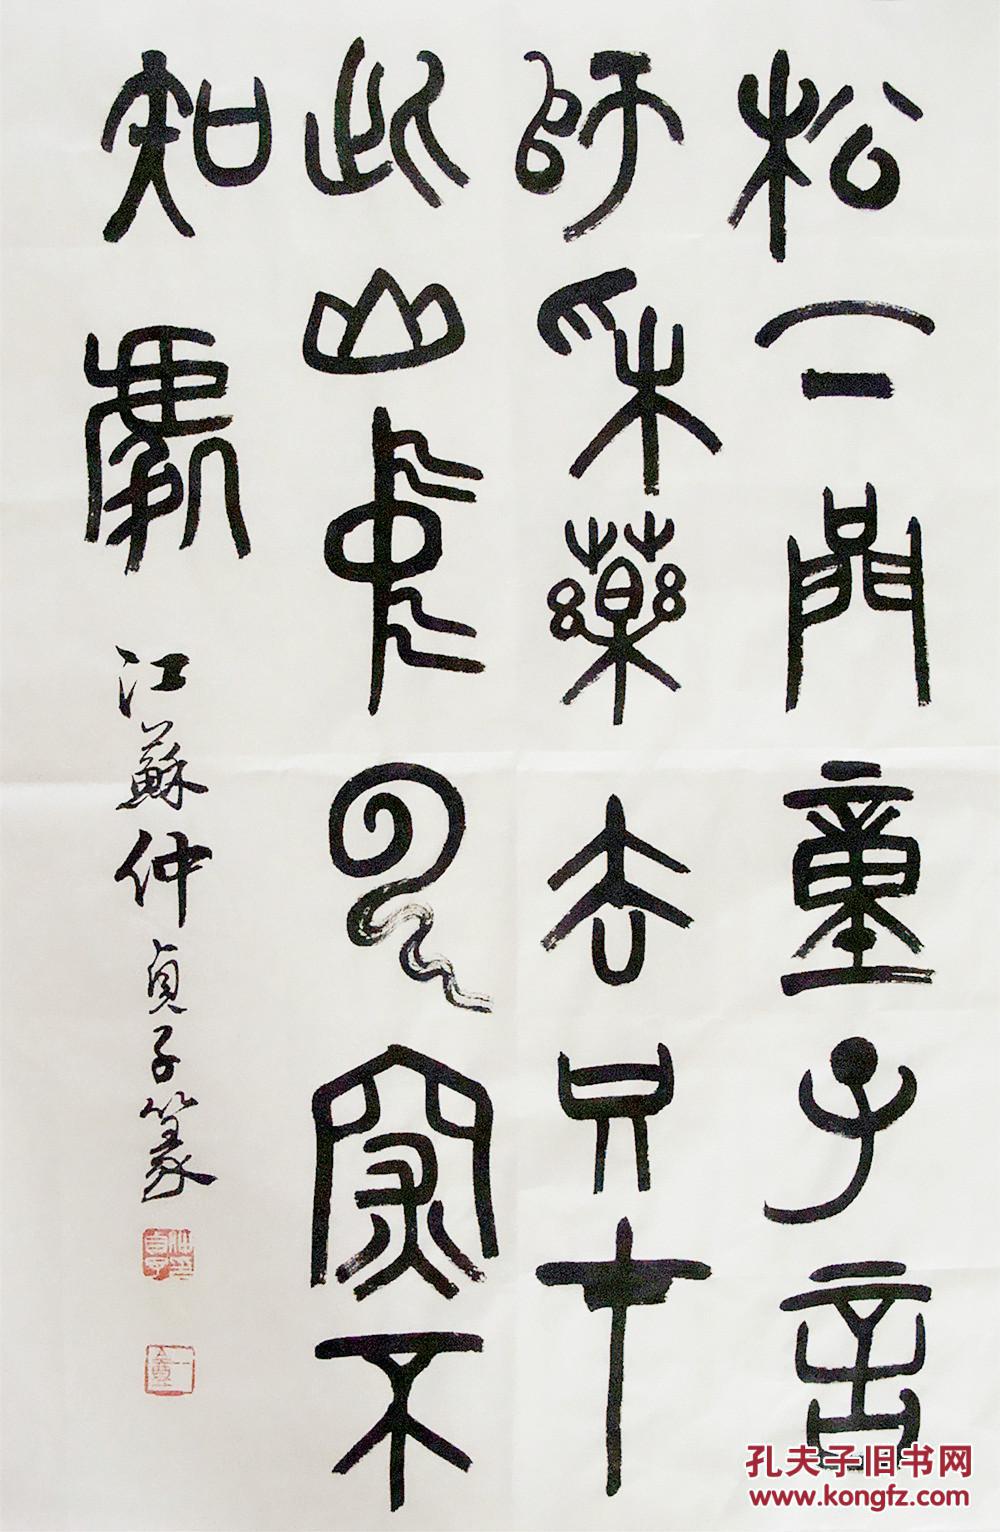 松下問童子言
師采藥去只在
此山中云深不
知處
江蘇仲貞子篆
孔夫子旧书网
www.kongfz.com